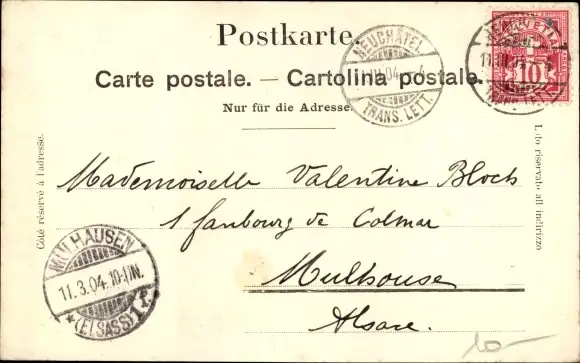 Postkarte.
Carte postale. — Cartolina postale.
Nur für die Adresse.
NEUCHÂTEL
III.04.
TRANS. LETT.
HELVETIA
10
11.III.04.
TRANS. LETT.
Côté réservé à l'adresse.
Lato riservato all indirizzo
Mademoiselle Valentine Bloch
1 faubourg de Colmar
Mulhouse
Alsace.
MÜLHAUSEN
11.3.04.10-11N.
* (ELSASS) 1 r.
10-